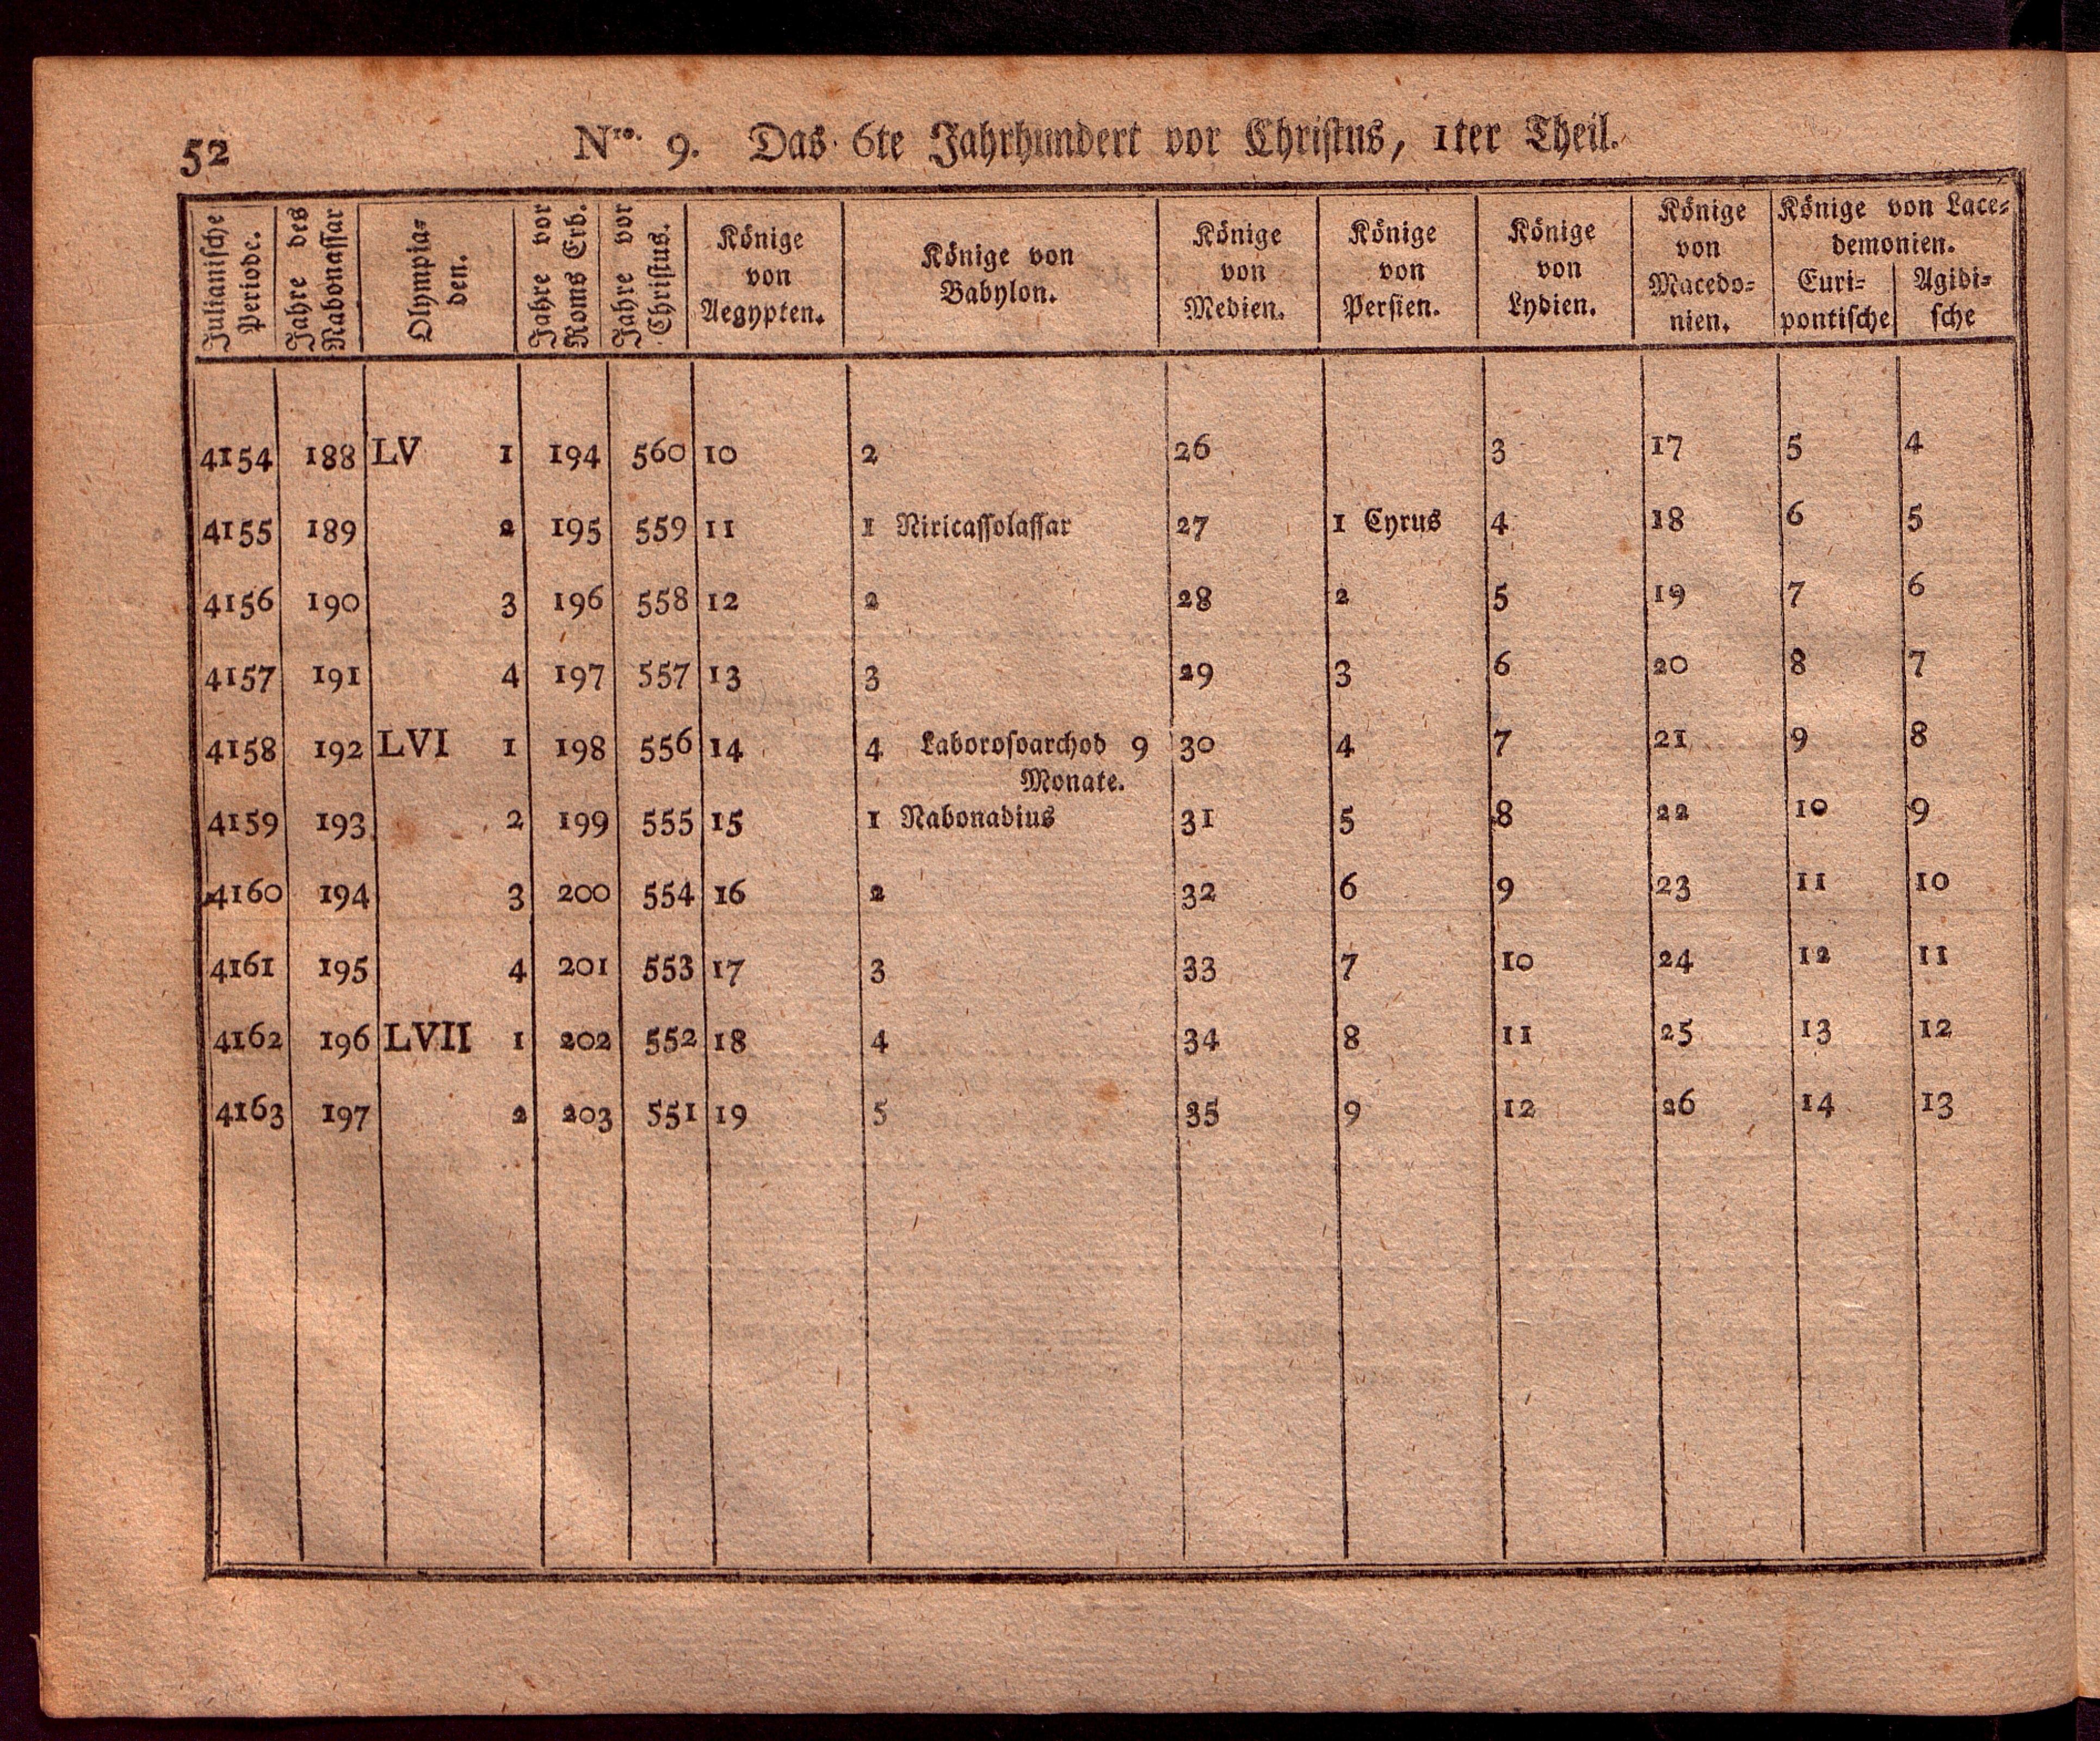 52
Nro. 9. Das 6te Jahrhundert vor Christus, 1ter Theil.
Julianische Periode. | Jahre des Nabonassar | Olympia-den. | Jahre vor Roms Erb. | Jahre vor Christus. | Könige von Aegypten. | Könige von Babylon. | Könige von Medien. | Könige von Persien. | Könige von Lydien. | Könige von Macedo-nien. | Könige von Lace-demonien. Euri-pontische | Agidi-sche
4154 188 LV 1 194 560 10 2 26 3 17 5 4
4155 189 2 195 559 11 1 Niricassolassar 27 1 Cyrus 4 18 6 5
4156 190 3 196 558 12 2 28 2 5 19 7 6
4157 191 4 197 557 13 3 29 3 6 20 8 7
4158 192 LVI 1 198 556 14 4 Laborosoarchod 9 30 4 7 21 9 8
Monate.
4159 193 2 199 555 15 1 Nabonadius 31 5 8 22 10 9
4160 194 3 200 554 16 2 32 6 9 23 11 10
4161 195 4 201 553 17 3 33 7 10 24 12 11
4162 196 LVII 1 202 552 18 4 34 8 11 25 13 12
4163 197 2 203 551 19 5 35 9 12 26 14 13